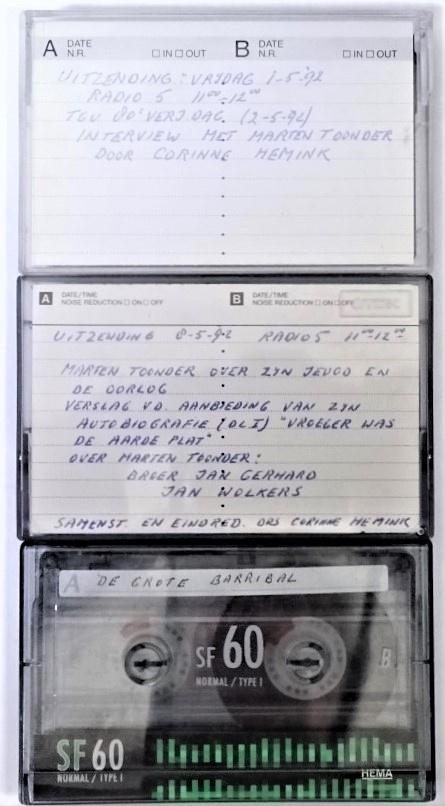 A DATE B DATE
N.R. ☐ IN ☐ OUT N.R. ☐ IN ☐ OUT
UITZENDING: VRIJDAG 1-5-'92
RADIO 5 11⁰⁰-12⁰⁰
TGV 80ᵉ VERJ.DAG. (2-5-92)
INTERVIEW MET MARTEN TOONDER
DOOR CORINNE HEMINK
A DATE/TIME B DATE/TIME
NOISE REDUCTION ☐ ON ☐ OFF NOISE REDUCTION ☐ ON ☐ OFF
UITZENDING 8-5-92 RADIO 5 11⁰⁰-12⁰⁰
MARTEN TOONDER OVER ZYN JEUGD EN
DE OORLOG
VERSLAG V.D. AANBIEDING VAN ZYN
AUTOBIOGRAFIE (DL I) "VROEGER WAS
DE AARDE PLAT"
OVER MARTEN TOONDER:
BROER JAN GERHARD
JAN WOLKERS
SAMENST. EN EINDRED. DRS CORINNE HEMINK
A DE GROTE BARRIBAL
SF 60 B
NORMAL / TYPE I
SF 60
NORMAL / TYPE I
HEMA